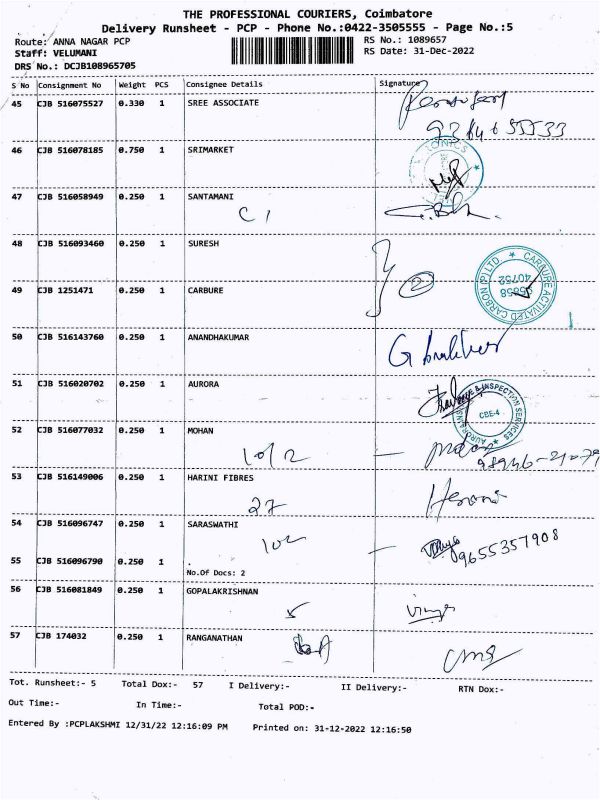 THE PROFESSIONAL COURIERS, Coimbatore
Delivery Runsheet - PCP - Phone No.:0422-3505555 - Page No.:5
Route: ANNA NAGAR PCP RS No.: 1089657
Staff: VELUMANI RS Date: 31-Dec-2022
DRS No.: DCJB108965705
S No Consignment No Weight PCS Consignee Details Signature
45 CJB 516075527 0.330 1 SREE ASSOCIATE
46 CJB 516078185 0.750 1 SRIMARKET
47 CJB 516058949 0.250 1 SANTAMANI
48 CJB 516093460 0.250 1 SURESH
2
49 CJB 1251471 0.250 1 CARBURE
CARBURE ACTIVATED CARBON (P) LTD.
50 CJB 516143760 0.250 1 ANANDHAKUMAR
51 CJB 516020702 0.250 1 AURORA
CBE-4
52 CJB 516077032 0.250 1 MOHAN
53 CJB 516149006 0.250 1 HARINI FIBRES
27
54 CJB 516096747 0.250 1 SARASWATHI
9655357908
55 CJB 516096790 0.250 1
No.Of Docs: 2
56 CJB 516081849 0.250 1 GOPALAKRISHNAN
57 CJB 174032 0.250 1 RANGANATHAN
Tot. Runsheet:- 5 Total Dox:- 57 I Delivery:- II Delivery:- RTN Dox:-
Out Time:- In Time:- Total POD:-
Entered By :PCPLAKSHMI 12/31/22 12:16:09 PM Printed on: 31-12-2022 12:16:50